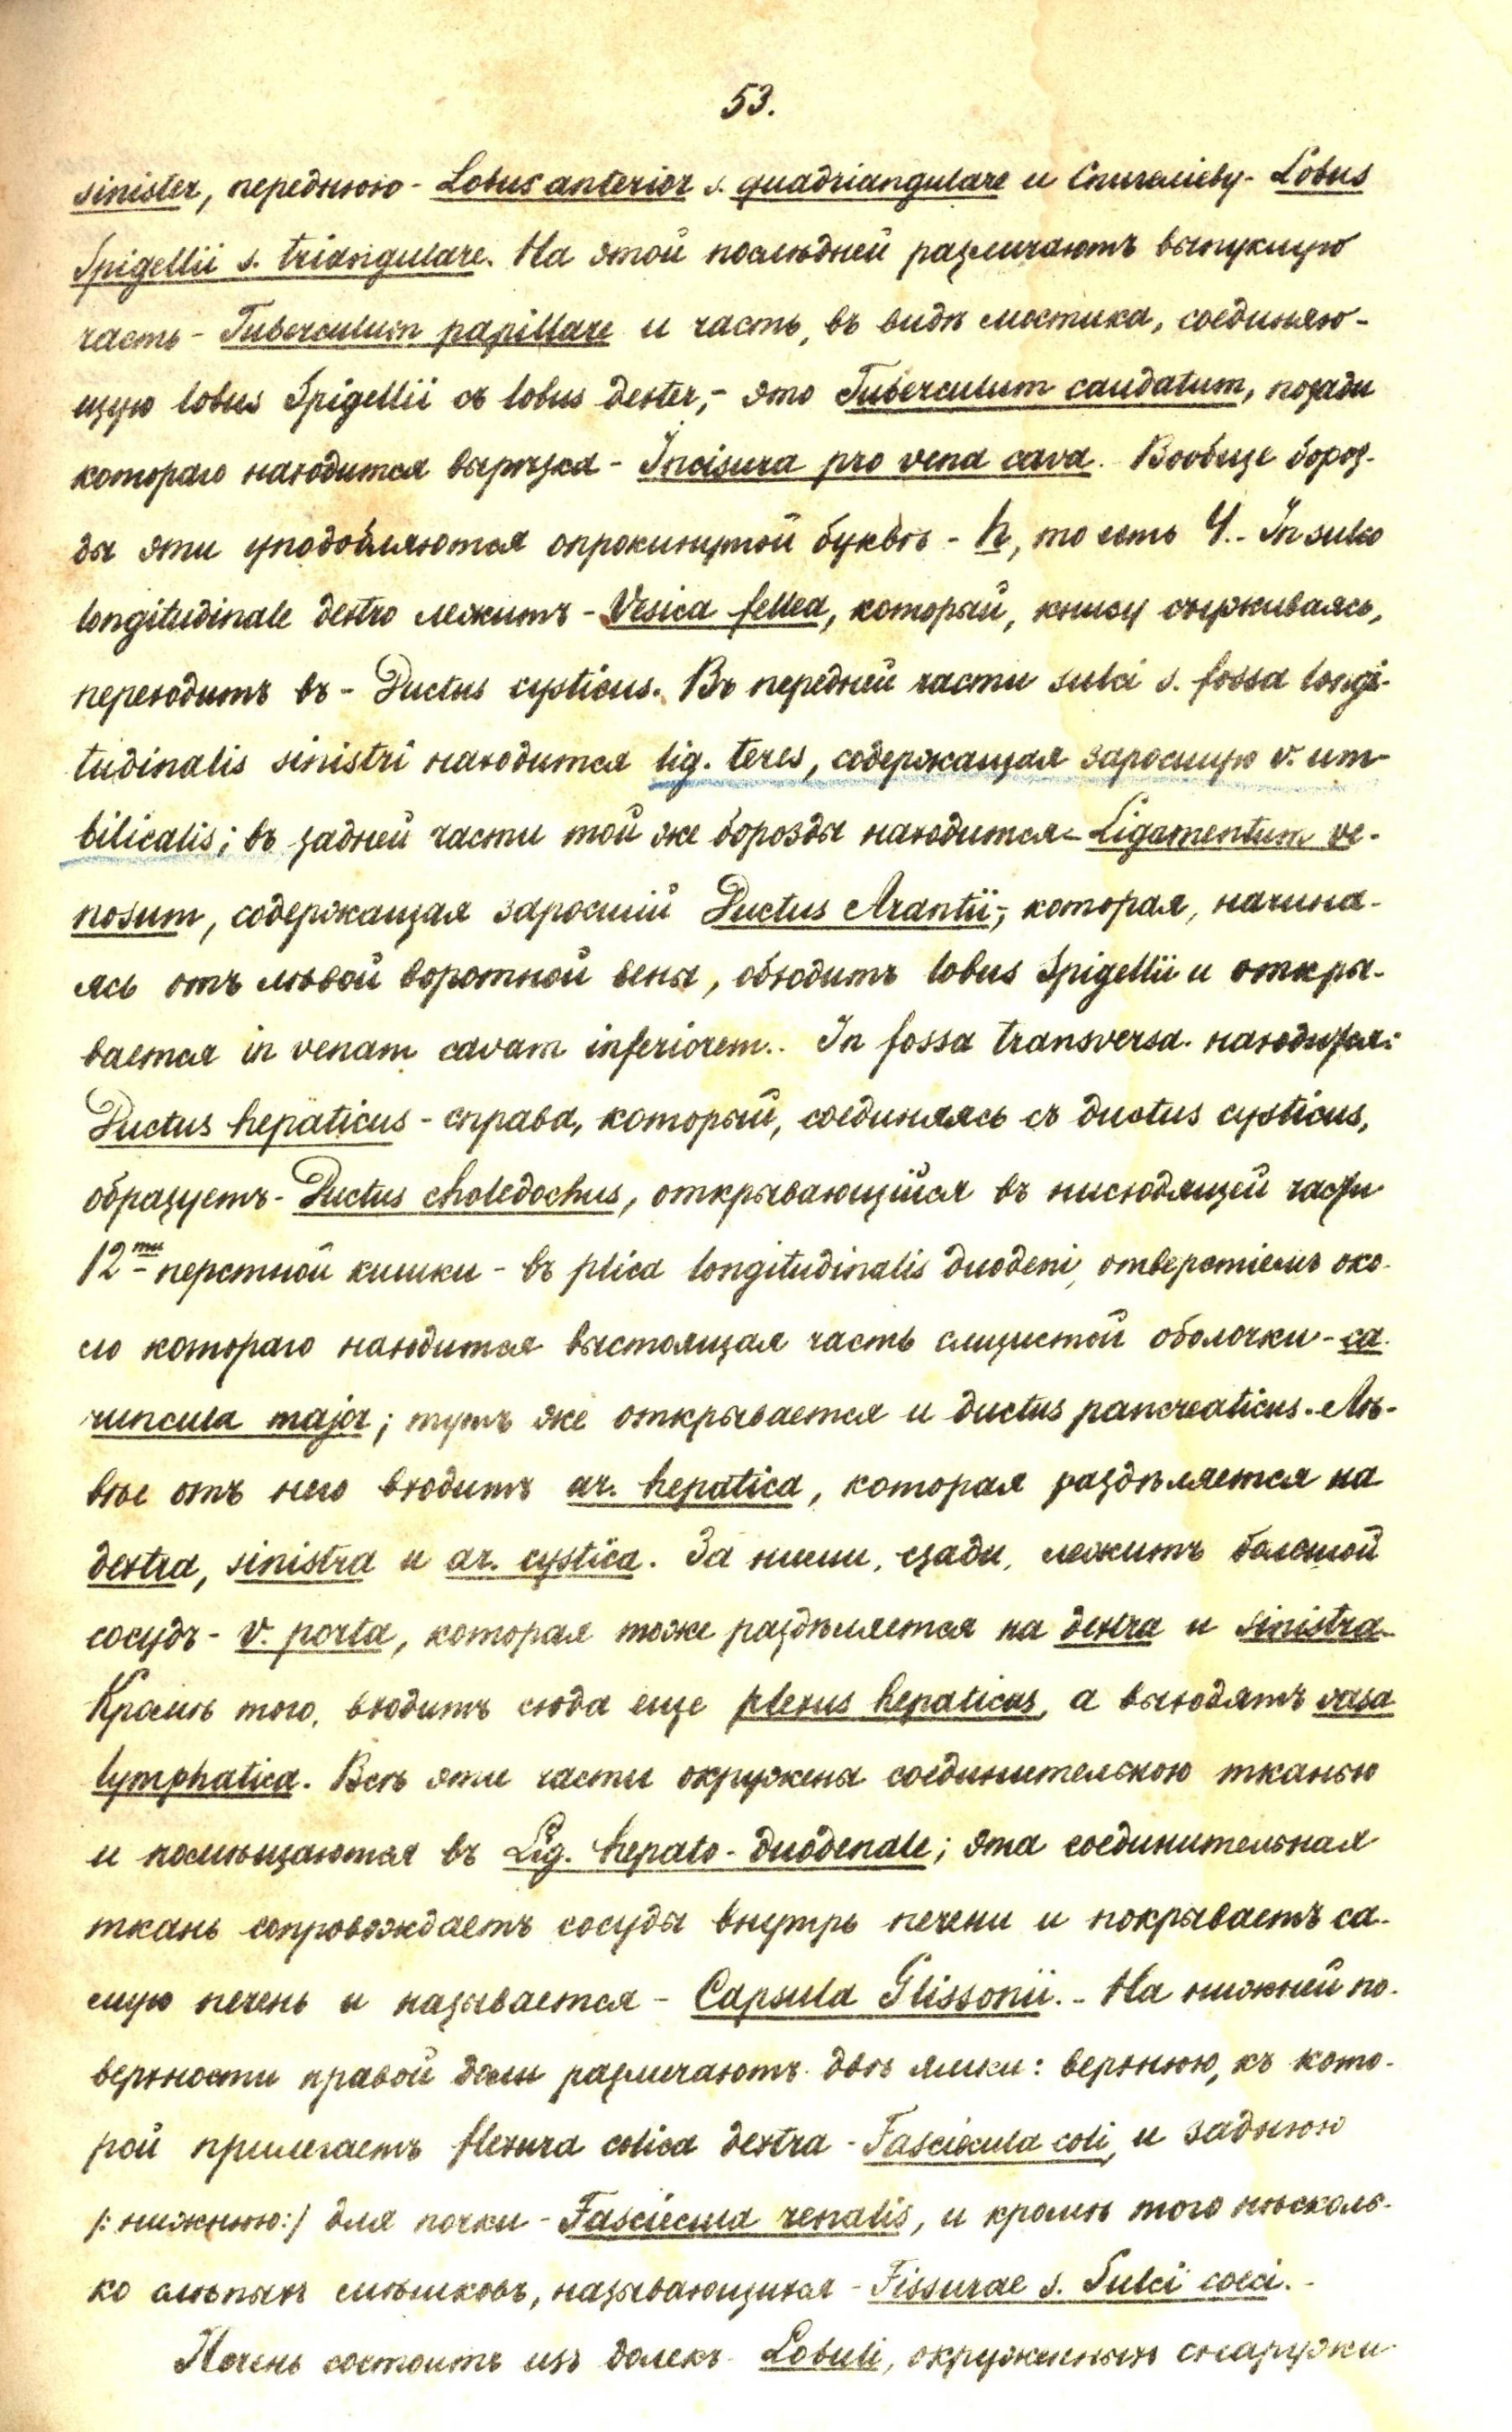 53.
sinister, переднюю - Lobus anterior s. quadriangulare и Спигелiеву - Lobus
Spigellii s. triangulare. На этой послѣдней различаютъ выпуклую
часть - Tuberculum papillare и часть, въ видѣ мостика, соединяю-
щую lobus Spigellii съ lobus dexter, - это Tuberculum caudatum, позади
котораго находится вырѣзка - Incisura pro vena cava. Вообще бороз-
ды эти уподобляются опрокинутой буквѣ - h, то есть Ч. - In sulco
longitudinale dextro лежитъ - Vesica fellea, который, книзу съуживаясь,
переходитъ въ - Ductus cysticus. Въ передней части sulci s. fossa longi-
tudinalis sinistri находится lig. teres, содержащая заросшую v. um-
bilicalis; въ задней части той же борозды находится - Ligamentum ve-
nosum, содержащая заросшiй Ductus Arantii, - которая, начина-
ясь отъ лѣвой воротной вены, обходитъ lobus Spigellii и откры-
вается in venam cavam inferiorem. - In fossa transversa находится:
Ductus hepaticus - справа, который, соединяясь съ ductus cysticus,
образуетъ - Ductus choledochus, открывающiйся въ нисходящей части
12ти перстной кишки - въ plica longitudinalis duodeni, отверстiемъ око-
ло котораго находится выстоящая часть слизистой оболочки - ca-
runcula major; тутъ же открывается и ductus pancreaticus. - Лѣ-
вѣе отъ него входитъ ar. hepatica, которая раздѣляется на
dextra, sinistra и ar. cystica. За ними, сзади, лежитъ большой
сосудъ - v. porta, которая тоже раздѣляется на dextra и sinistra.
Кромѣ того, входитъ сюда еще plexus hepaticus, а выходятъ vasa
lymphatica. Всѣ эти части окружены соединительною тканью
и помѣщаются въ Lig. hepato-duodenale; эта соединительная
ткань сопровождаетъ сосуды внутрь печени и покрываетъ са-
мую печень и называется - Capsula Glissonii. - На нижней по-
верхности правой доли различаютъ двѣ ямки: верхнюю, къ кото-
рой прилегаетъ flexura colica dextra - Fasciecula coli, и заднюю
/: нижнюю :/ для почки - Fasciecula renalis, и кромѣ того нѣсколь-
ко слѣпыхъ мѣшковъ, называющихся - Fissurae s. Sulci coeci. -
Печень состоитъ изъ долекъ Lobuli, окруженныхъ снаружи